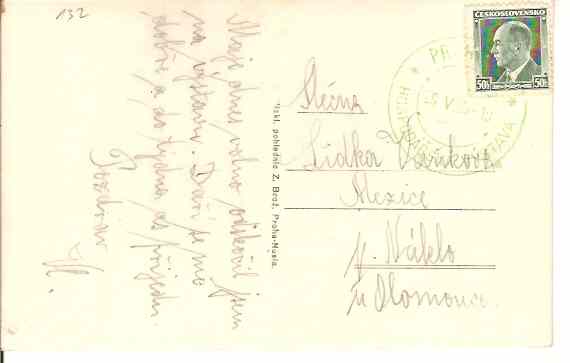 132
Maji dnes volno odskočil jsem
na výstavu. Daří se mo
dobře a do týdne as přijedu.
Pozdrav
Nakl. pohlednic Z. Brož, Praha-Nusle.
ČESKOSLOVENSKO
50h 50h
PR
VÝSTAVA
Slečna
Lidka
Mezice
p. Náklo
u Olomouce.